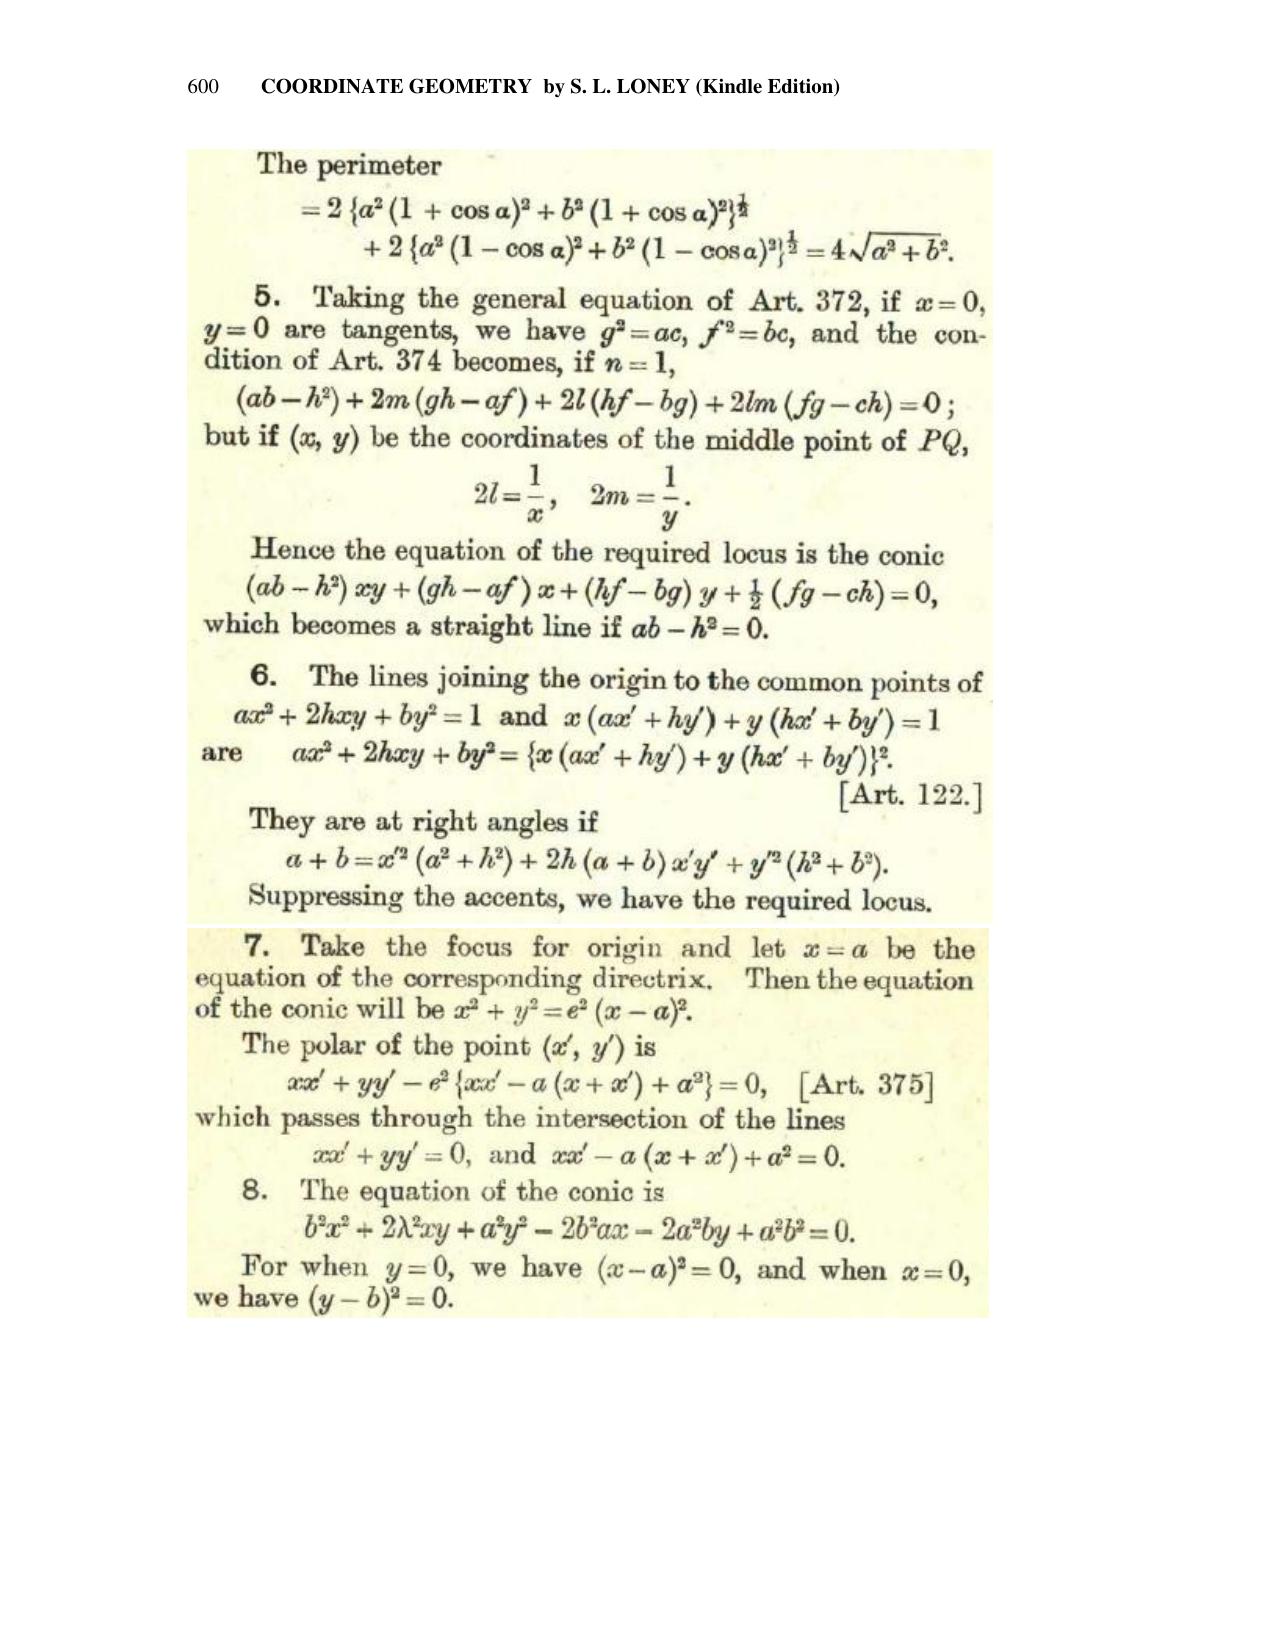 600 COORDINATE GEOMETRY by S. L. LONEY (Kindle Edition)
The perimeter
= 2 {a² (1 + cos α)² + b² (1 + cos α)²}^½
+ 2 {a² (1 − cos α)² + b² (1 − cos α)²}^½ = 4√(a² + b²).
5. Taking the general equation of Art. 372, if x = 0,
y = 0 are tangents, we have g² = ac, f² = bc, and the con-
dition of Art. 374 becomes, if n = 1,
(ab − h²) + 2m (gh − af) + 2l (hf − bg) + 2lm (fg − ch) = 0 ;
but if (x, y) be the coordinates of the middle point of PQ,
2l = 1/x, 2m = 1/y.
Hence the equation of the required locus is the conic
(ab − h²) xy + (gh − af) x + (hf − bg) y + ½ (fg − ch) = 0,
which becomes a straight line if ab − h² = 0.
6. The lines joining the origin to the common points of
ax² + 2hxy + by² = 1 and x (ax′ + hy′) + y (hx′ + by′) = 1
are ax² + 2hxy + by² = {x (ax′ + hy′) + y (hx′ + by′)}².
[Art. 122.]
They are at right angles if
a + b = x′² (a² + h²) + 2h (a + b) x′y′ + y′² (h² + b²).
Suppressing the accents, we have the required locus.
7. Take the focus for origin and let x = a be the
equation of the corresponding directrix. Then the equation
of the conic will be x² + y² = e² (x − a)².
The polar of the point (x′, y′) is
xx′ + yy′ − e² {xx′ − a (x + x′) + a²} = 0, [Art. 375]
which passes through the intersection of the lines
xx′ + yy′ = 0, and xx′ − a (x + x′) + a² = 0.
8. The equation of the conic is
b²x² + 2λ²xy + a²y² − 2b²ax − 2a²by + a²b² = 0.
For when y = 0, we have (x − a)² = 0, and when x = 0,
we have (y − b)² = 0.